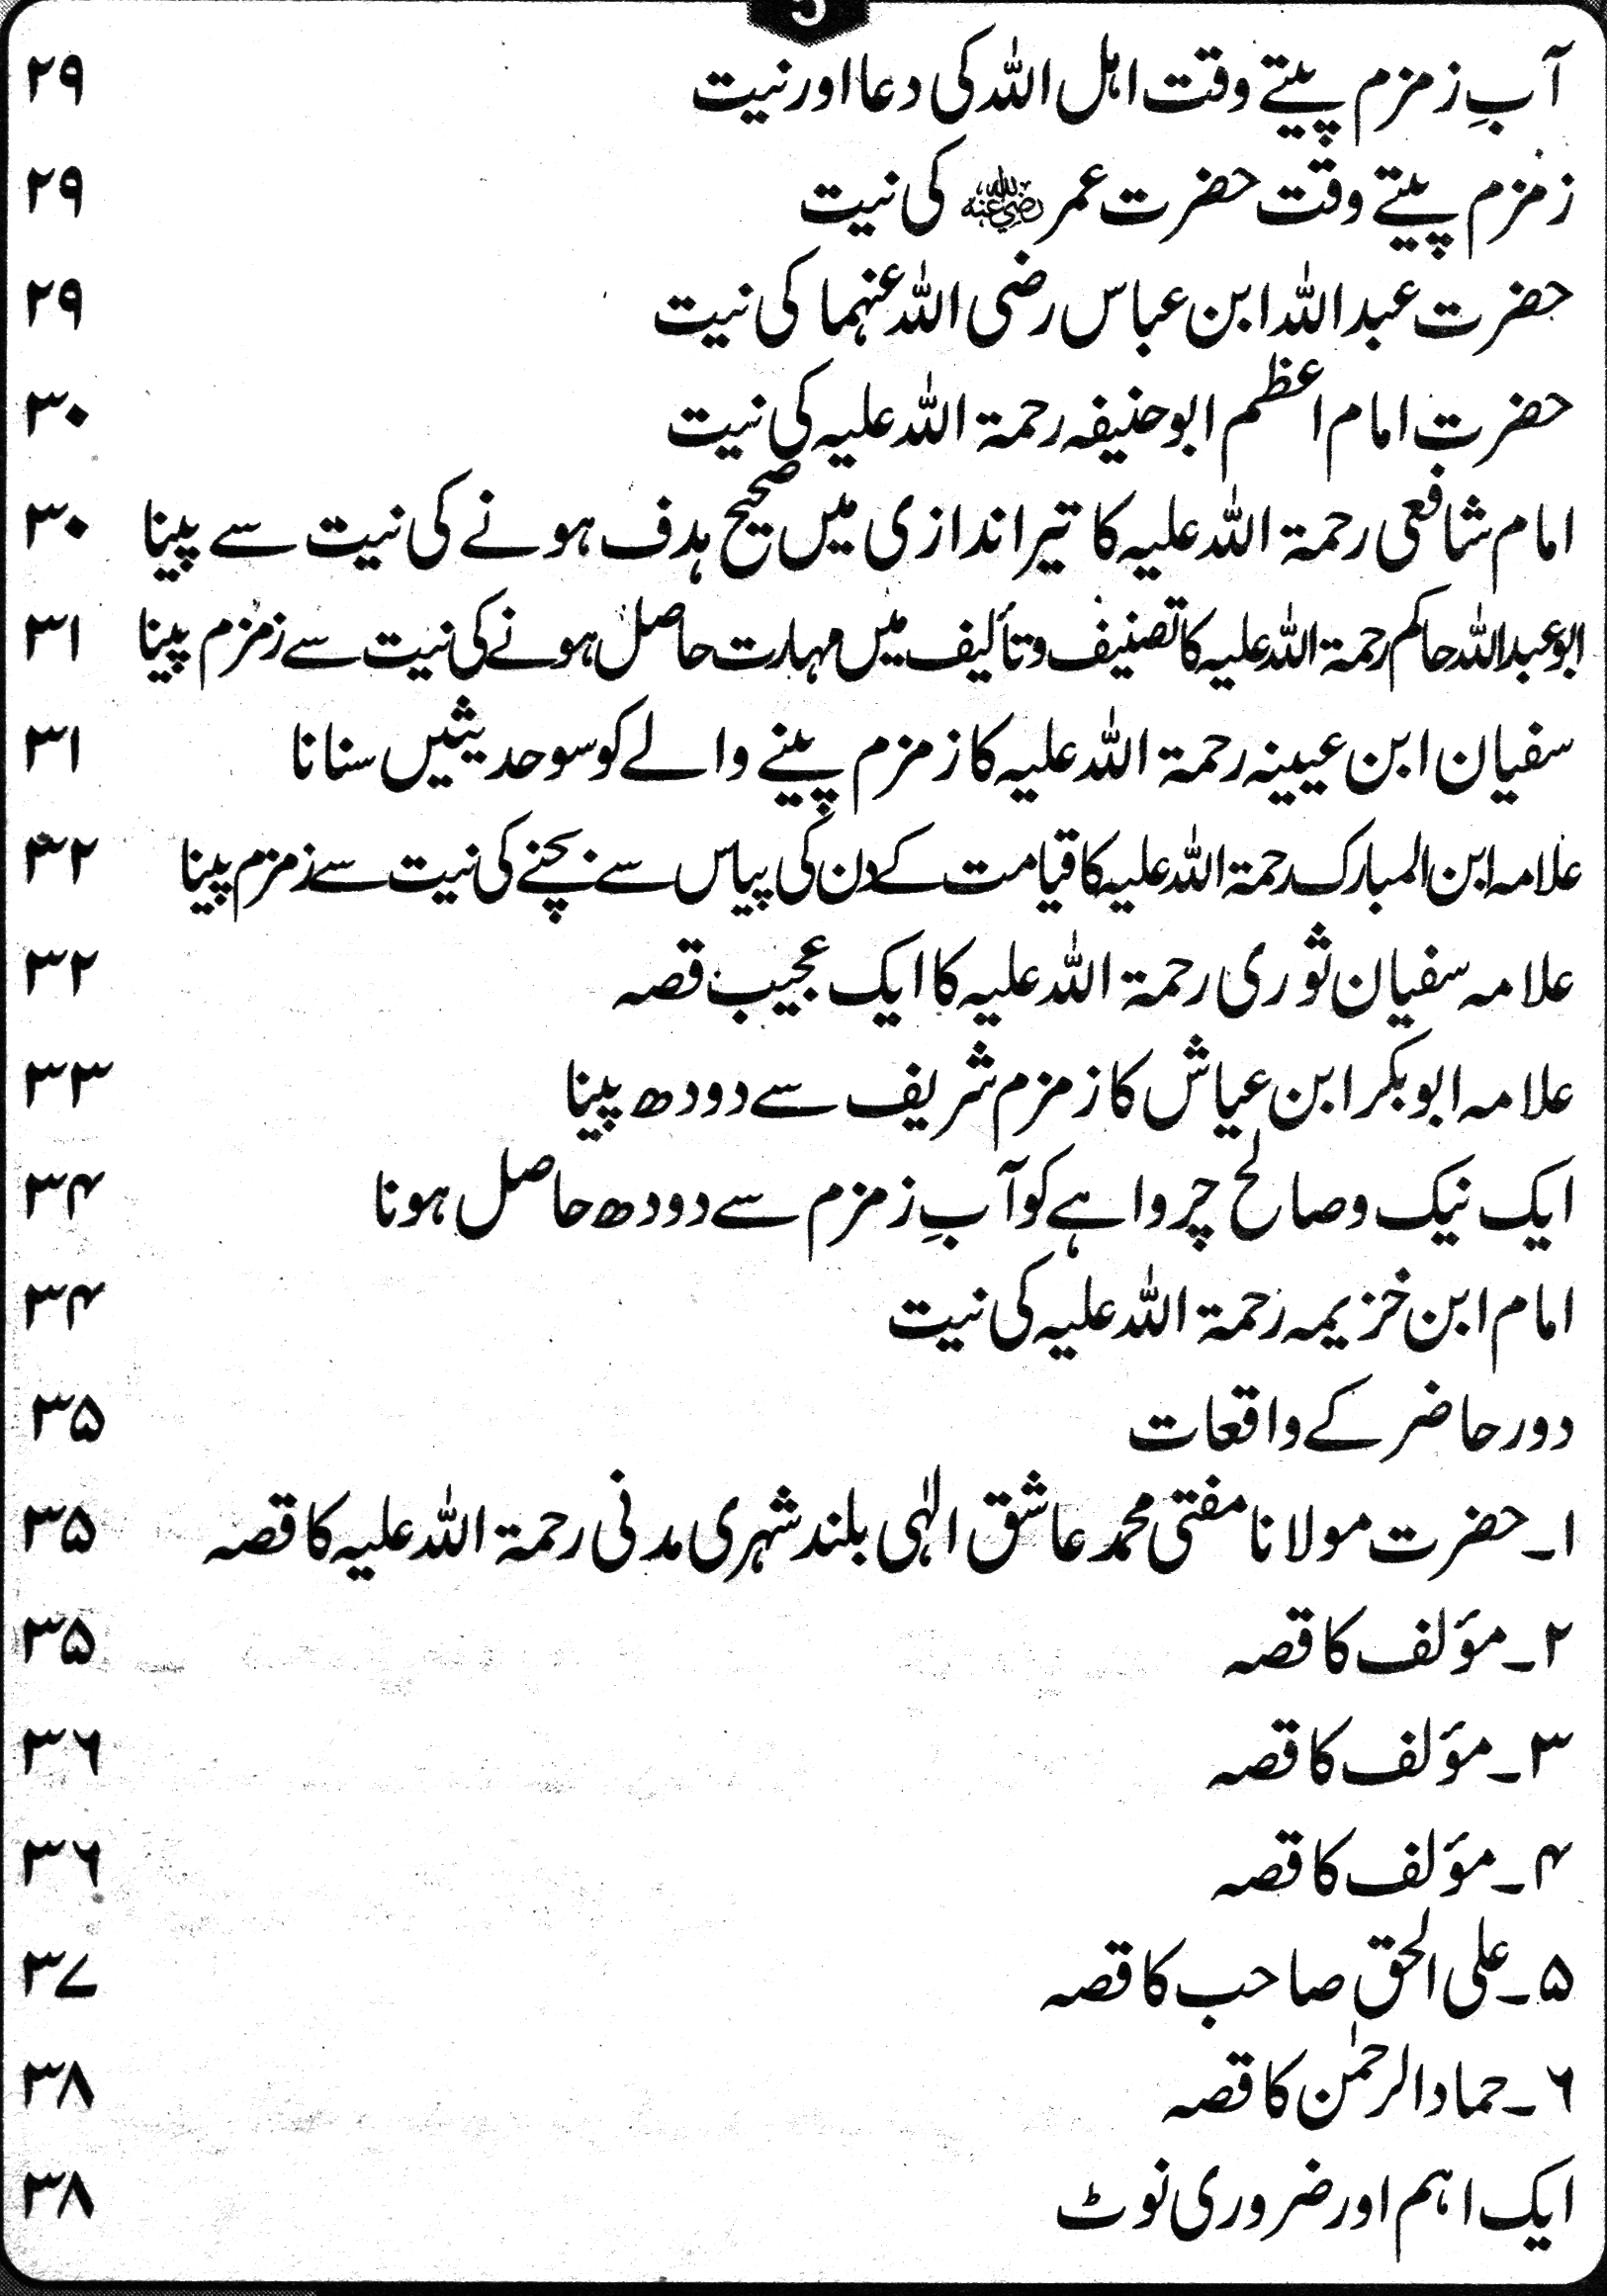 5
آبِ زمزم پیتے وقت اہل اللہ کی دعا اور نیت ۲۹
زمزم پیتے وقت حضرت عمر رضی اللہ عنہ کی نیت ۲۹
حضرت عبداللہ ابن عباس رضی اللہ عنہما کی نیت ۲۹
حضرت امام اعظم ابوحنیفہ رحمۃ اللہ علیہ کی نیت ۳۰
امام شافعی رحمۃ اللہ علیہ کا تیر اندازی میں صحیح ہدف ہونے کی نیت سے پینا ۳۰
ابوعبداللہ حاکم رحمۃ اللہ علیہ کا تصنیف و تألیف میں مہارت حاصل ہونے کی نیت سے زمزم پینا ۳۱
سفیان ابن عیینہ رحمۃ اللہ علیہ کا زمزم پینے والے کو سو حدیثیں سنانا ۳۱
علامہ ابن المبارک رحمۃ اللہ علیہ کا قیامت کے دن کی پیاس سے بچنے کی نیت سے زمزم پینا ۳۲
علامہ سفیان ثوری رحمۃ اللہ علیہ کا ایک عجیب قصہ ۳۲
علامہ ابوبکر ابن عیاش کا زمزم شریف سے دودھ پینا ۳۳
ایک نیک وصالح چرواہے کو آبِ زمزم سے دودھ حاصل ہونا ۳۴
امام ابن خزیمہ رحمۃ اللہ علیہ کی نیت ۳۴
دور حاضر کے واقعات ۳۵
۱۔ حضرت مولانا مفتی محمد عاشق الٰہی بلند شہری مدنی رحمۃ اللہ علیہ کا قصہ ۳۵
۲۔ مؤلف کا قصہ ۳۵
۳۔ مؤلف کا قصہ ۳۶
۴۔ مؤلف کا قصہ ۳۶
۵۔ علی الحق صاحب کا قصہ ۳۷
۶۔ حماد الرحمٰن کا قصہ ۳۸
ایک اہم اور ضروری نوٹ ۳۸